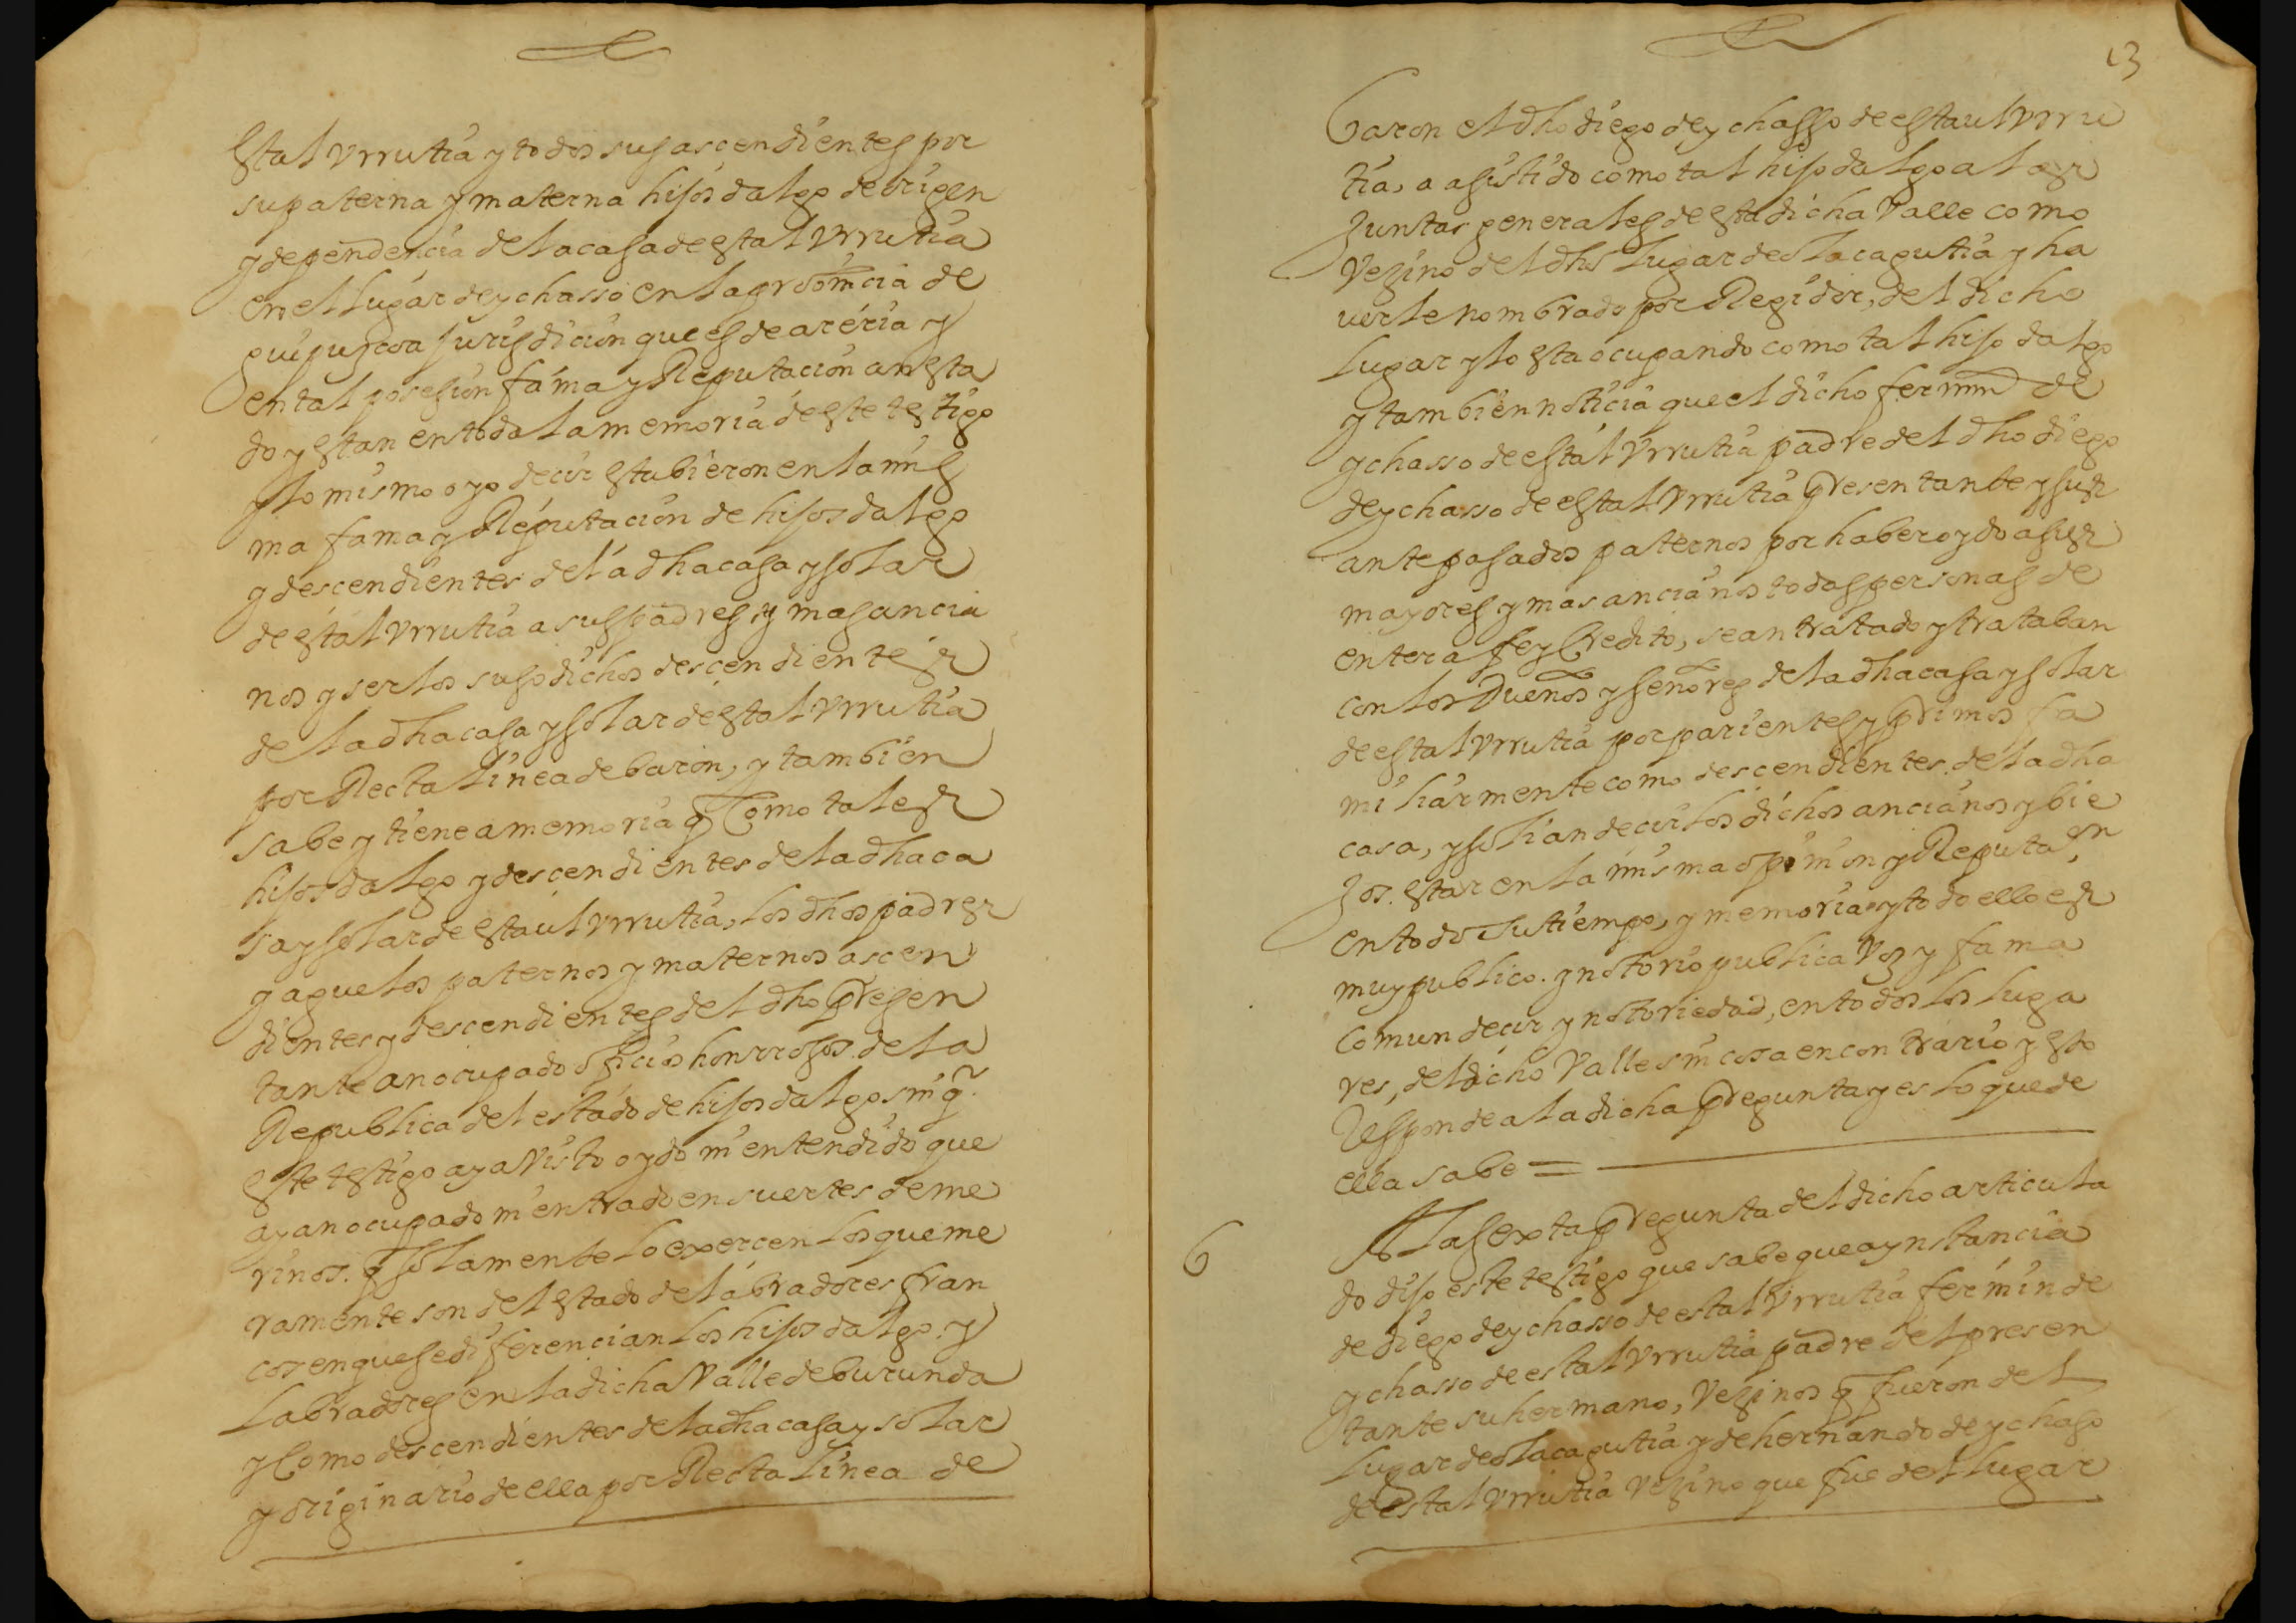 estal Vrrutia y todos sus ascendientes por
su paterna y materna hijos dalgo de origen
y dependencia de la casa de estal Vrrutia
en el lugar de ychasso en la provincia de
guipuzcoa jurisdicion que es de areria y
en tal posesion fama y Reputacion an esta
do y estan en toda la memoria de este testigo
y lo mismo oyo decir estubieron en la mis
ma fama y Reputacion de hijos dalgo
y descendientes de la dha casa y solar
de estal Vrrutia a sus padres y mas ancia
nos y ser los suso dichos descendientes
de la dha casa y solar de estal Vrrutia
por Recta linea de baron, y tambien
sabe y tiene a memoria q Como tales
hijos dalgo y descendientes de la dha ca
sa y solar de estaul Vrrutia, los dhos padres
y aguelos paternos y maternos ascen
dientes y descendientes del dho Presen
tante an ocupado oficios honrrosos de la
Republica del estado de hijos dalgo sin q
este testigo aya Visto oydo ni entendido que
ayan ocupado ni entrado en suertes de me
rinos. q solamente lo exercen los que me
ramente son del estado de labradores fran
cos en que se diferencian los hijos dalgo. y
Labradores en la dicha Valle de burunda
y Como descendientes de la dha casa y solar
y originario de ella por Recta linea de
13
Baron el dho diego de ychasso de estaul Vrru
tia, a asistido como tal hijo dalgo a las
Juntas generales de esta dicha Valle como
Vezino del dho Lugar de olacagutia y ha
verle nombrado por Regidor, del dicho
Lugar y lo esta ocupando como tal hijo dalgo
y tambien noticia que el dicho fermin de
ychasso de estal Vrrutia padre del dho diego
de ychasso de estal Vrrutia Presentante y sus
antepasados paternos por haber oydo a sus
mayores y mas ancianos todas personas de
entera fe y Credito, se an tratado y trataban
con los Dueños y señores de la dha casa y solar
de estal Vrrutia por parientes y Primos fa
miliarmente como descendientes de la dha
casa, y solian decir los dichos ancianos y bie
Jos. estar en la misma opinion y Reputaon
en todo su tiempo, y memoria y todo ello es
muy publico. y notorio publica Voz y fama
Comun decir y notoriedad, en todos los luga
res, del dicho Valle sin cosa en contrario y esto
Responde a la dicha Pregunta y es lo que de
ella sabe =
6
A la sexta Pregunta del dicho articula
do dijo este testigo que sabe que a ynstancia
de diego de ychasso de estal Vrrutia fermin de
ychasso de estal Vrrutia padre del presen
tante su hermano, Vezinos q fueron del
Lugar de olacagutia y de hernando de ychaso
de estal Vrrutia Vezino que fue del lugar